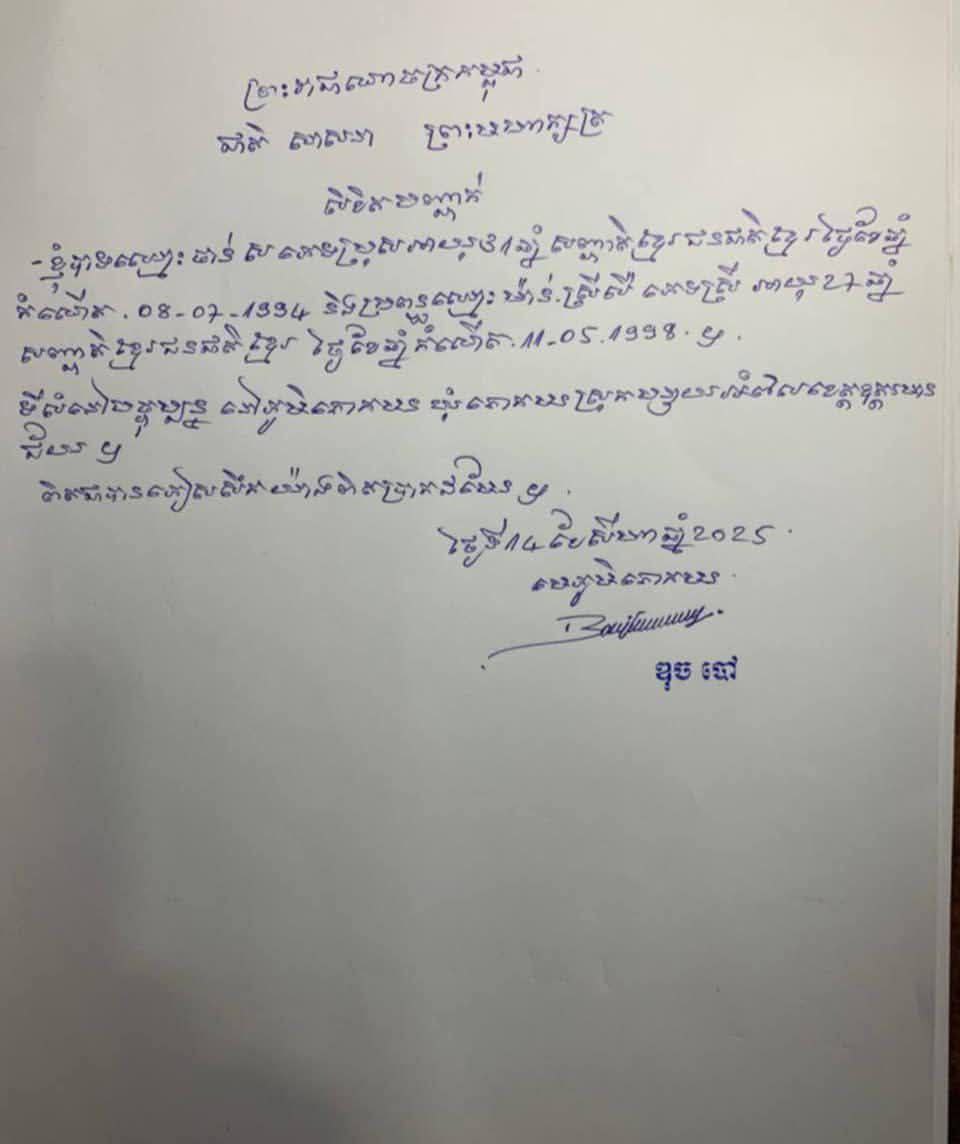 ព្រះរាជាណាចក្រកម្ពុជា
ជាតិ សាសនា ព្រះមហាក្សត្រ
លិខិតបញ្ជាក់
- ខ្ញុំបាទឈ្មោះ ផាន់ ស ភេទប្រុសអាយុ31ឆ្នាំ សញ្ជាតិខ្មែរជនជាតិខ្មែរ ថ្ងៃខែឆ្នាំ
កំណើត. 08-07-1994 និងប្រពន្ធឈ្មោះ ម៉ាន់.ស្រីលី ភេទស្រី អាយុ27ឆ្នាំ
សញ្ជាតិខ្មែរជនជាតិខ្មែរ ថ្ងៃខែឆ្នាំកំណើត.11-05.1998. ។
ទីលំនៅបច្ចុប្បន្ន នៅភូមិគោកមន ឃុំគោកមន ស្រុកបន្ទាយអំពិលខេត្តឧត្តរមាន
ជ័យ ។
ពិតជាបានភៀសសឹកយ៉ាងពិតប្រាកដមែន ។
ថ្ងៃទី14 ខែសីហា ឆ្នាំ2025
មេភូមិគោកមន
ឌុច បៅ